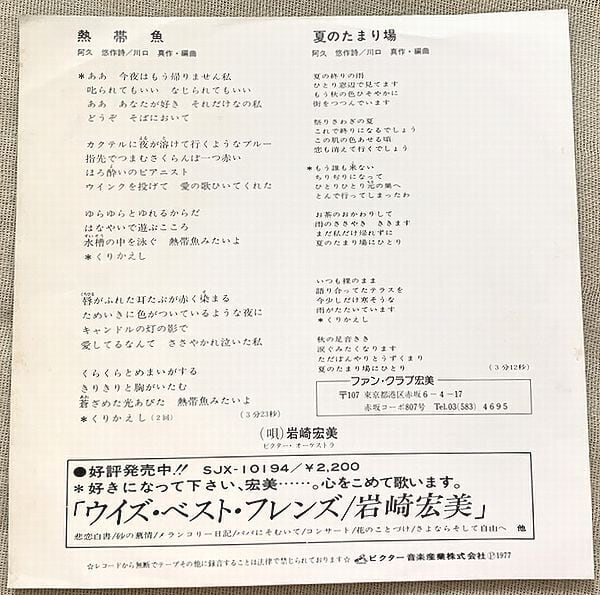 熱帯魚
阿久 悠作詩／川口 真作・編曲
*ああ 今夜はもう帰りません私
叱られてもいい なじられてもいい
ああ あなたが好き それだけなの私
どうぞ そばにおいて
カクテルに夜が溶けて行くようなブルー
指先でつまむさくらんぼ一つ赤い
ほろ酔いのピアニスト
ウインクを投げて 愛の歌ひいてくれた
ゆらゆらとゆれるからだ
はなやいで遊ぶこころ
水槽の中を泳ぐ 熱帯魚みたいよ
*くりかえし
唇がふれた耳たぶが赤く染まる
ためいきに色がついているような夜に
キャンドルの灯の影で
愛してるなんて ささやかれ泣いた私
くらくらとめまいがする
きりきりと胸がいたむ
蒼ざめた光あびた 熱帯魚みたいよ
*くりかえし(2回)
(3分23秒)
夏のたまり場
阿久 悠作詩／川口 真作・編曲
夏の終りの雨
ひとり窓辺で見てます
もう秋の色ひそやかに
街をつつんでいます
祭りさわぎの夏
これで終りになるでしょう
この肌の色あせる頃
恋も消えて行くでしょう
*もう誰も来ない
ちりぢりになって
ひとりひとり元の巣へ
とんで行ってしまったわ
お茶のおかわりして
雨のささやき ききます
まだ私だけ帰れずに
夏のたまり場にひとり
いつも裸のまま
語り合ってたテラスを
今少しだけ寒そうな
雨がたたいています
*くりかえし
秋の足音きき
涙ぐみたくなります
ただぼんやりとうずくまり
夏のたまり場にひとり
(3分12秒)
ファン・クラブ宏美
〒107 東京都港区赤坂6-4-17
赤坂コーポ807号 Tel.03(583)4695
(唄)岩崎宏美
ビクター・オーケストラ
●好評発売中!! SJX-10194/￥2,200
*好きになって下さい、宏美……。心をこめて歌います。
「ウイズ・ベスト・フレンズ/岩崎宏美」
悲恋白書/砂の慕情/メランコリー日記/パパにそむいて/コンサート/花のことづけ/さよならそして自由へ 他
☆レコードから無断でテープその他に録音することは法律で禁じられております☆
ビクター音楽産業株式会社 Ⓟ1977